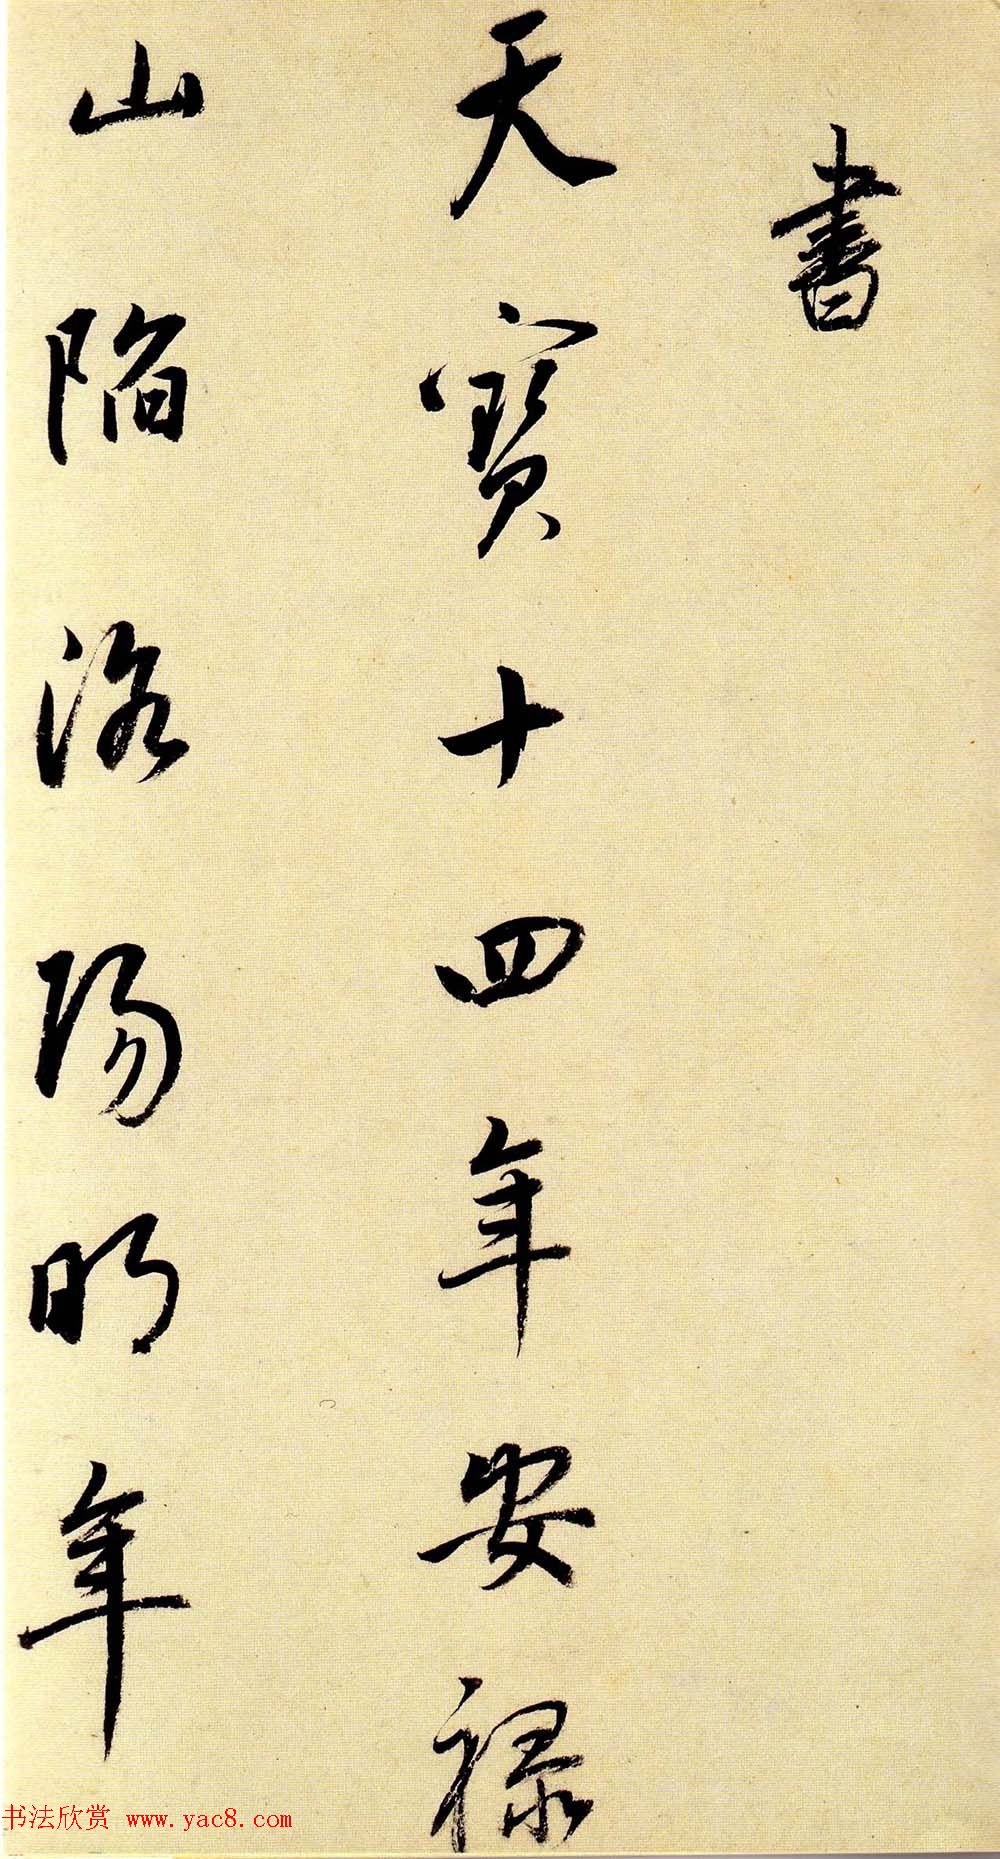 書
天寶十四年安禄
山陷洛陽明年
书法欣赏 www.yac8.com